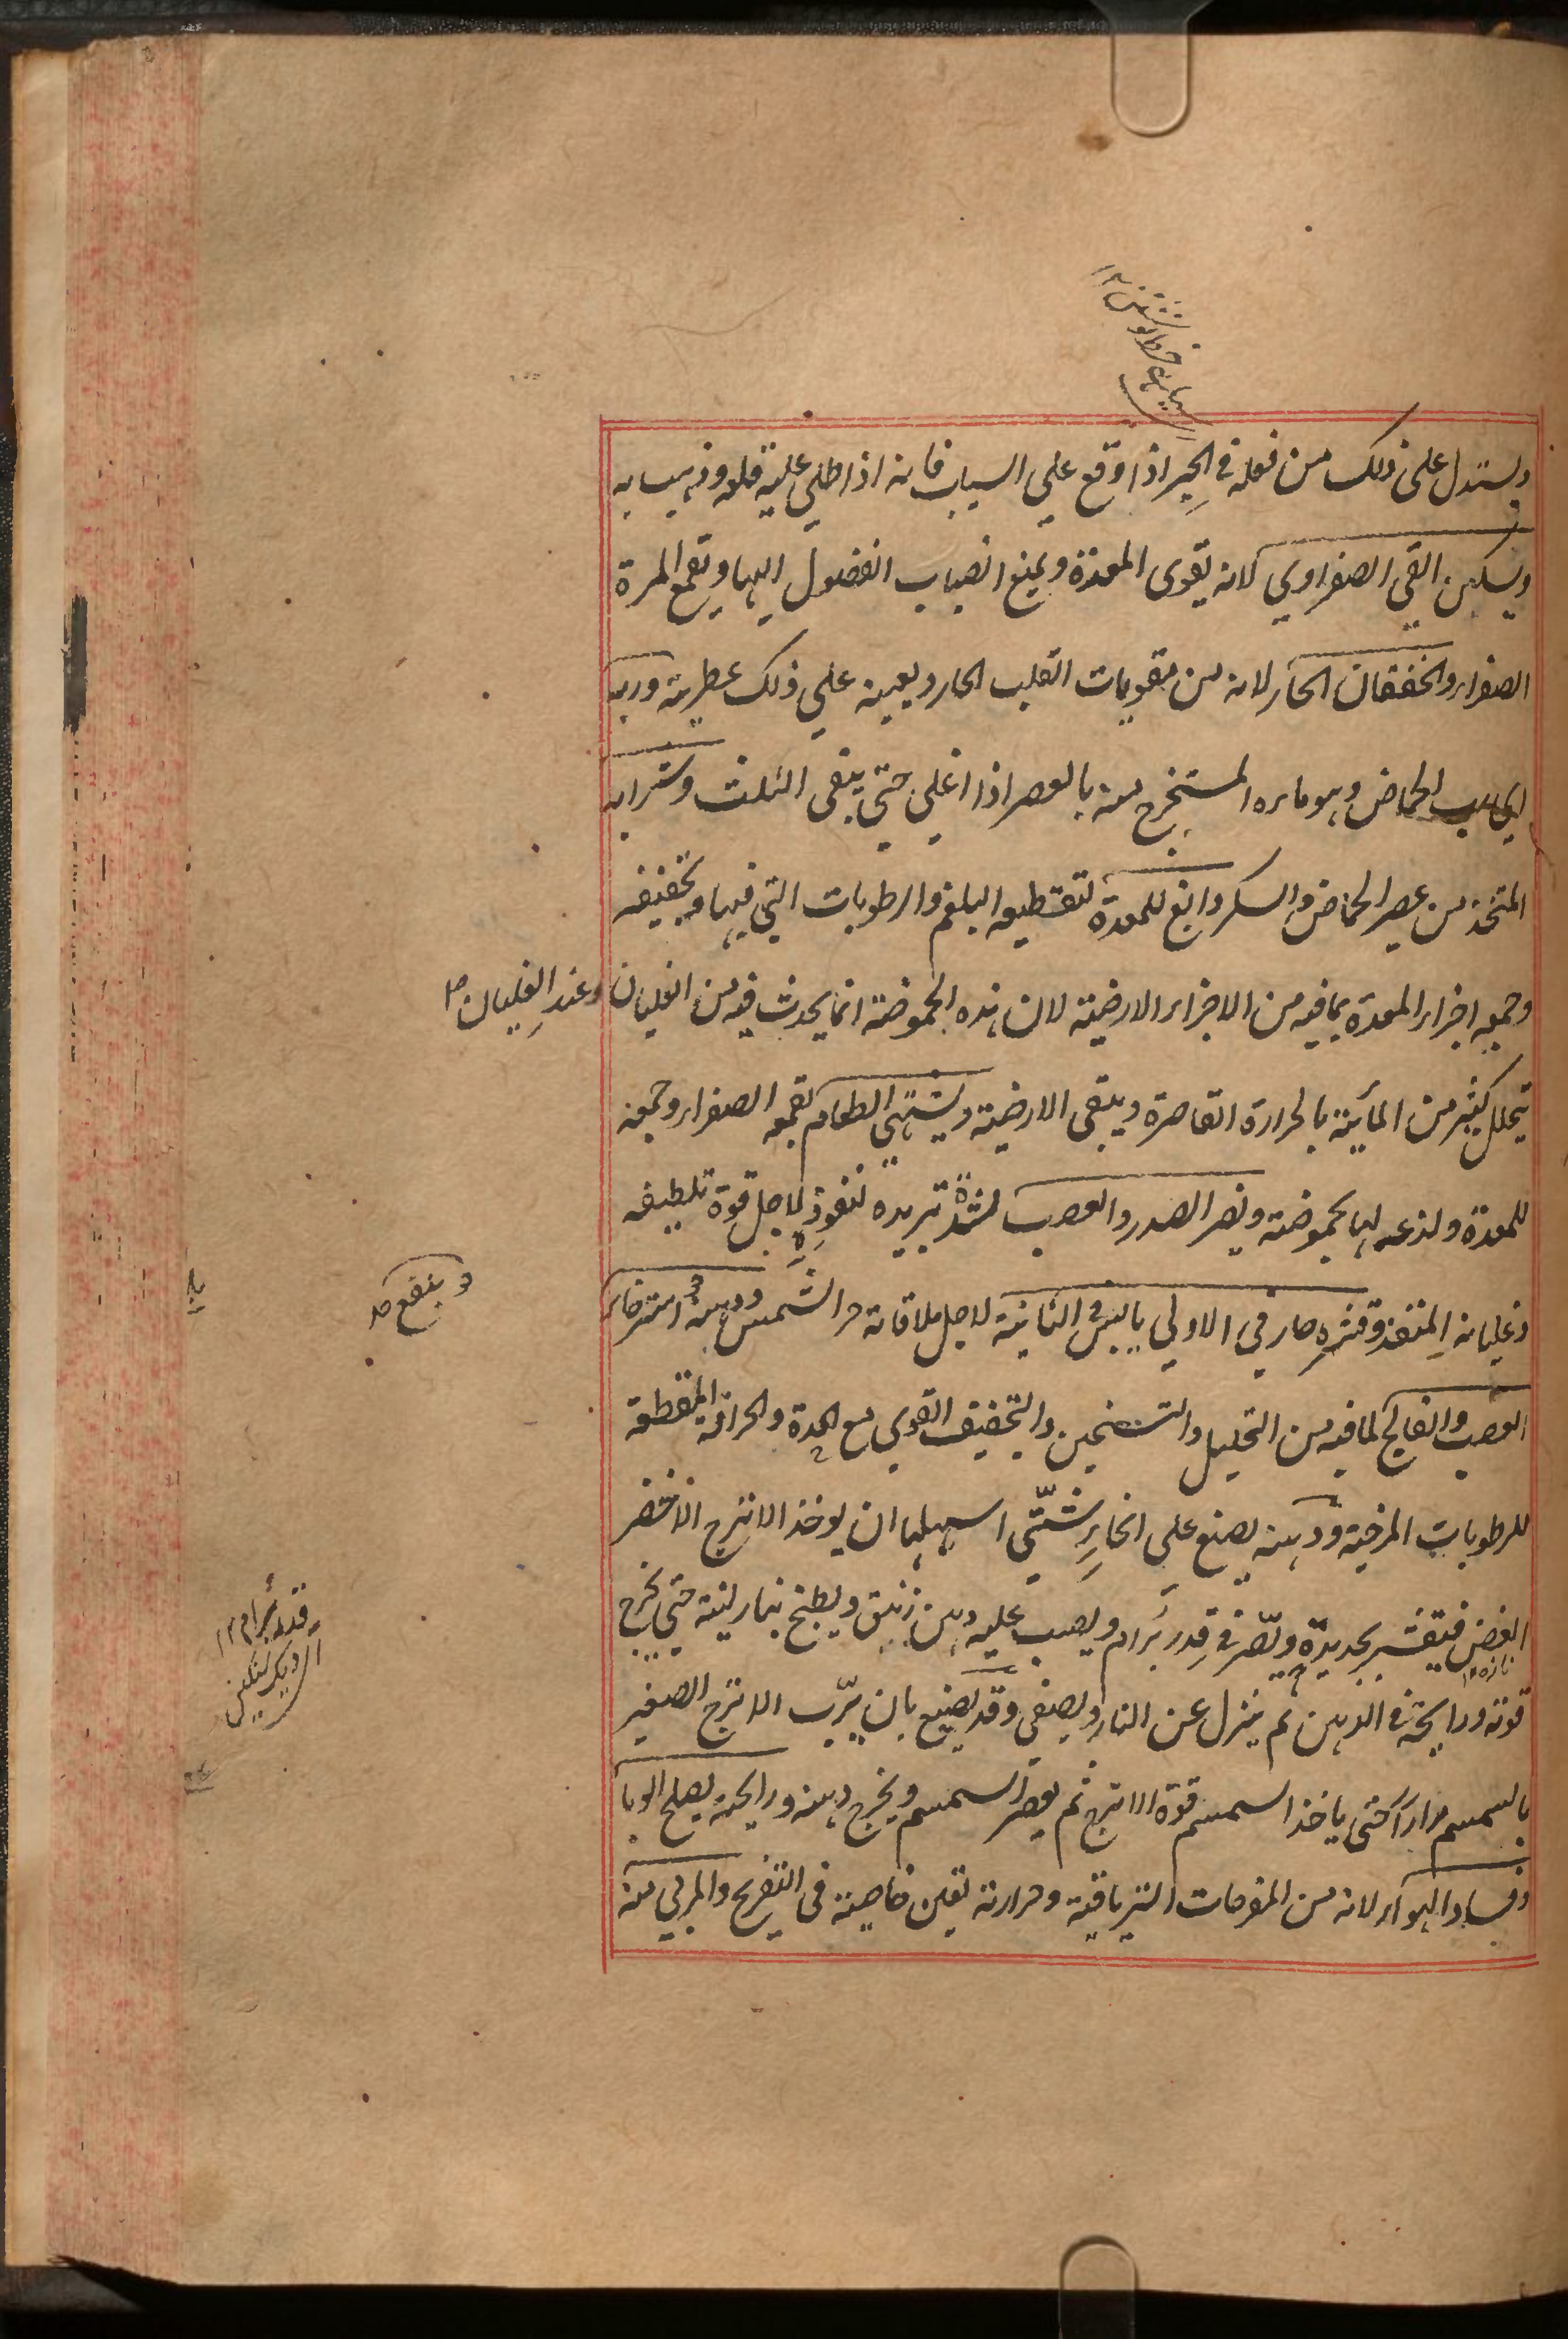 ويستدل على ذلك من فعله في الحبر اذا وقع علي الثياب فانه اذا طلي عليه قلعه وذهب به
ويسكن القي الصفراوي لانه يقوى المعدة ويمنع انصباب الفضول اليها ويقمع المرة
الصفراء والخفقان الحار لانه من مقويات القلب الحار ويعينه علي ذلك عطريته وربه
اي رب الحماض وهو ماءه المستخرج منه بالعصر اذا اغلي حتي يبقى الثلث وشرابه
المتخذ من عصير الحماض والسكر دابغ للمعدة لتقطيعه البلغم والرطوبات التي فيها وتجفيفه
وجمعه اجزاء المعدة بما فيه من الاجزاء الارضية لان هذه الحموضة انما يحدث فيه من الغليان وعند الغليان ص
يتحلل كثير من المائية بالحرارة القاصرة ويبقى الارضية ويشهي الطعام لقمعه الصفراء وجمعه
للمعدة ولذعه لها بحموضته ويضر الصدر والعصب لشدة تبريده لنفوذه لاجل قوة تلطيفه
وغليانه المنفذ وقشره حار في الاولي يابس في الثانية لاجل ملاقاته حر الشمس ودهنه استرخاء
وينفع ص
العصب والفالج لما فيه من التحليل والتسخين والتجفيف القوي مع الحدة والحرافة المقطعة
للرطوبات المرخية ودهنه يصنع علي انحاء شتّي اسهلها ان يوخذ الاترج الاخضر
الغض فيقشر بحديدة ويصّر في قدر برام ويصب عليه دهن زنبق ويطبخ بنار لينة حتي يخرج
تازه ١٢
قدر برام ١٢
قوته ورايحته في الدهن ثم ينزل عن النار ويصفى وقد يصنع بان يربّب الاترج الصغير
بالسمسم مراراً حتى ياخذ السمسم قوة الاترج ثم يعصر السمسم ويخرج دهنه ورايحته يصلح الوبا
وفساد الهواء لانه من المفرحات الترياقية وحرارته تعين خاصيته في التفريح والمربي منه